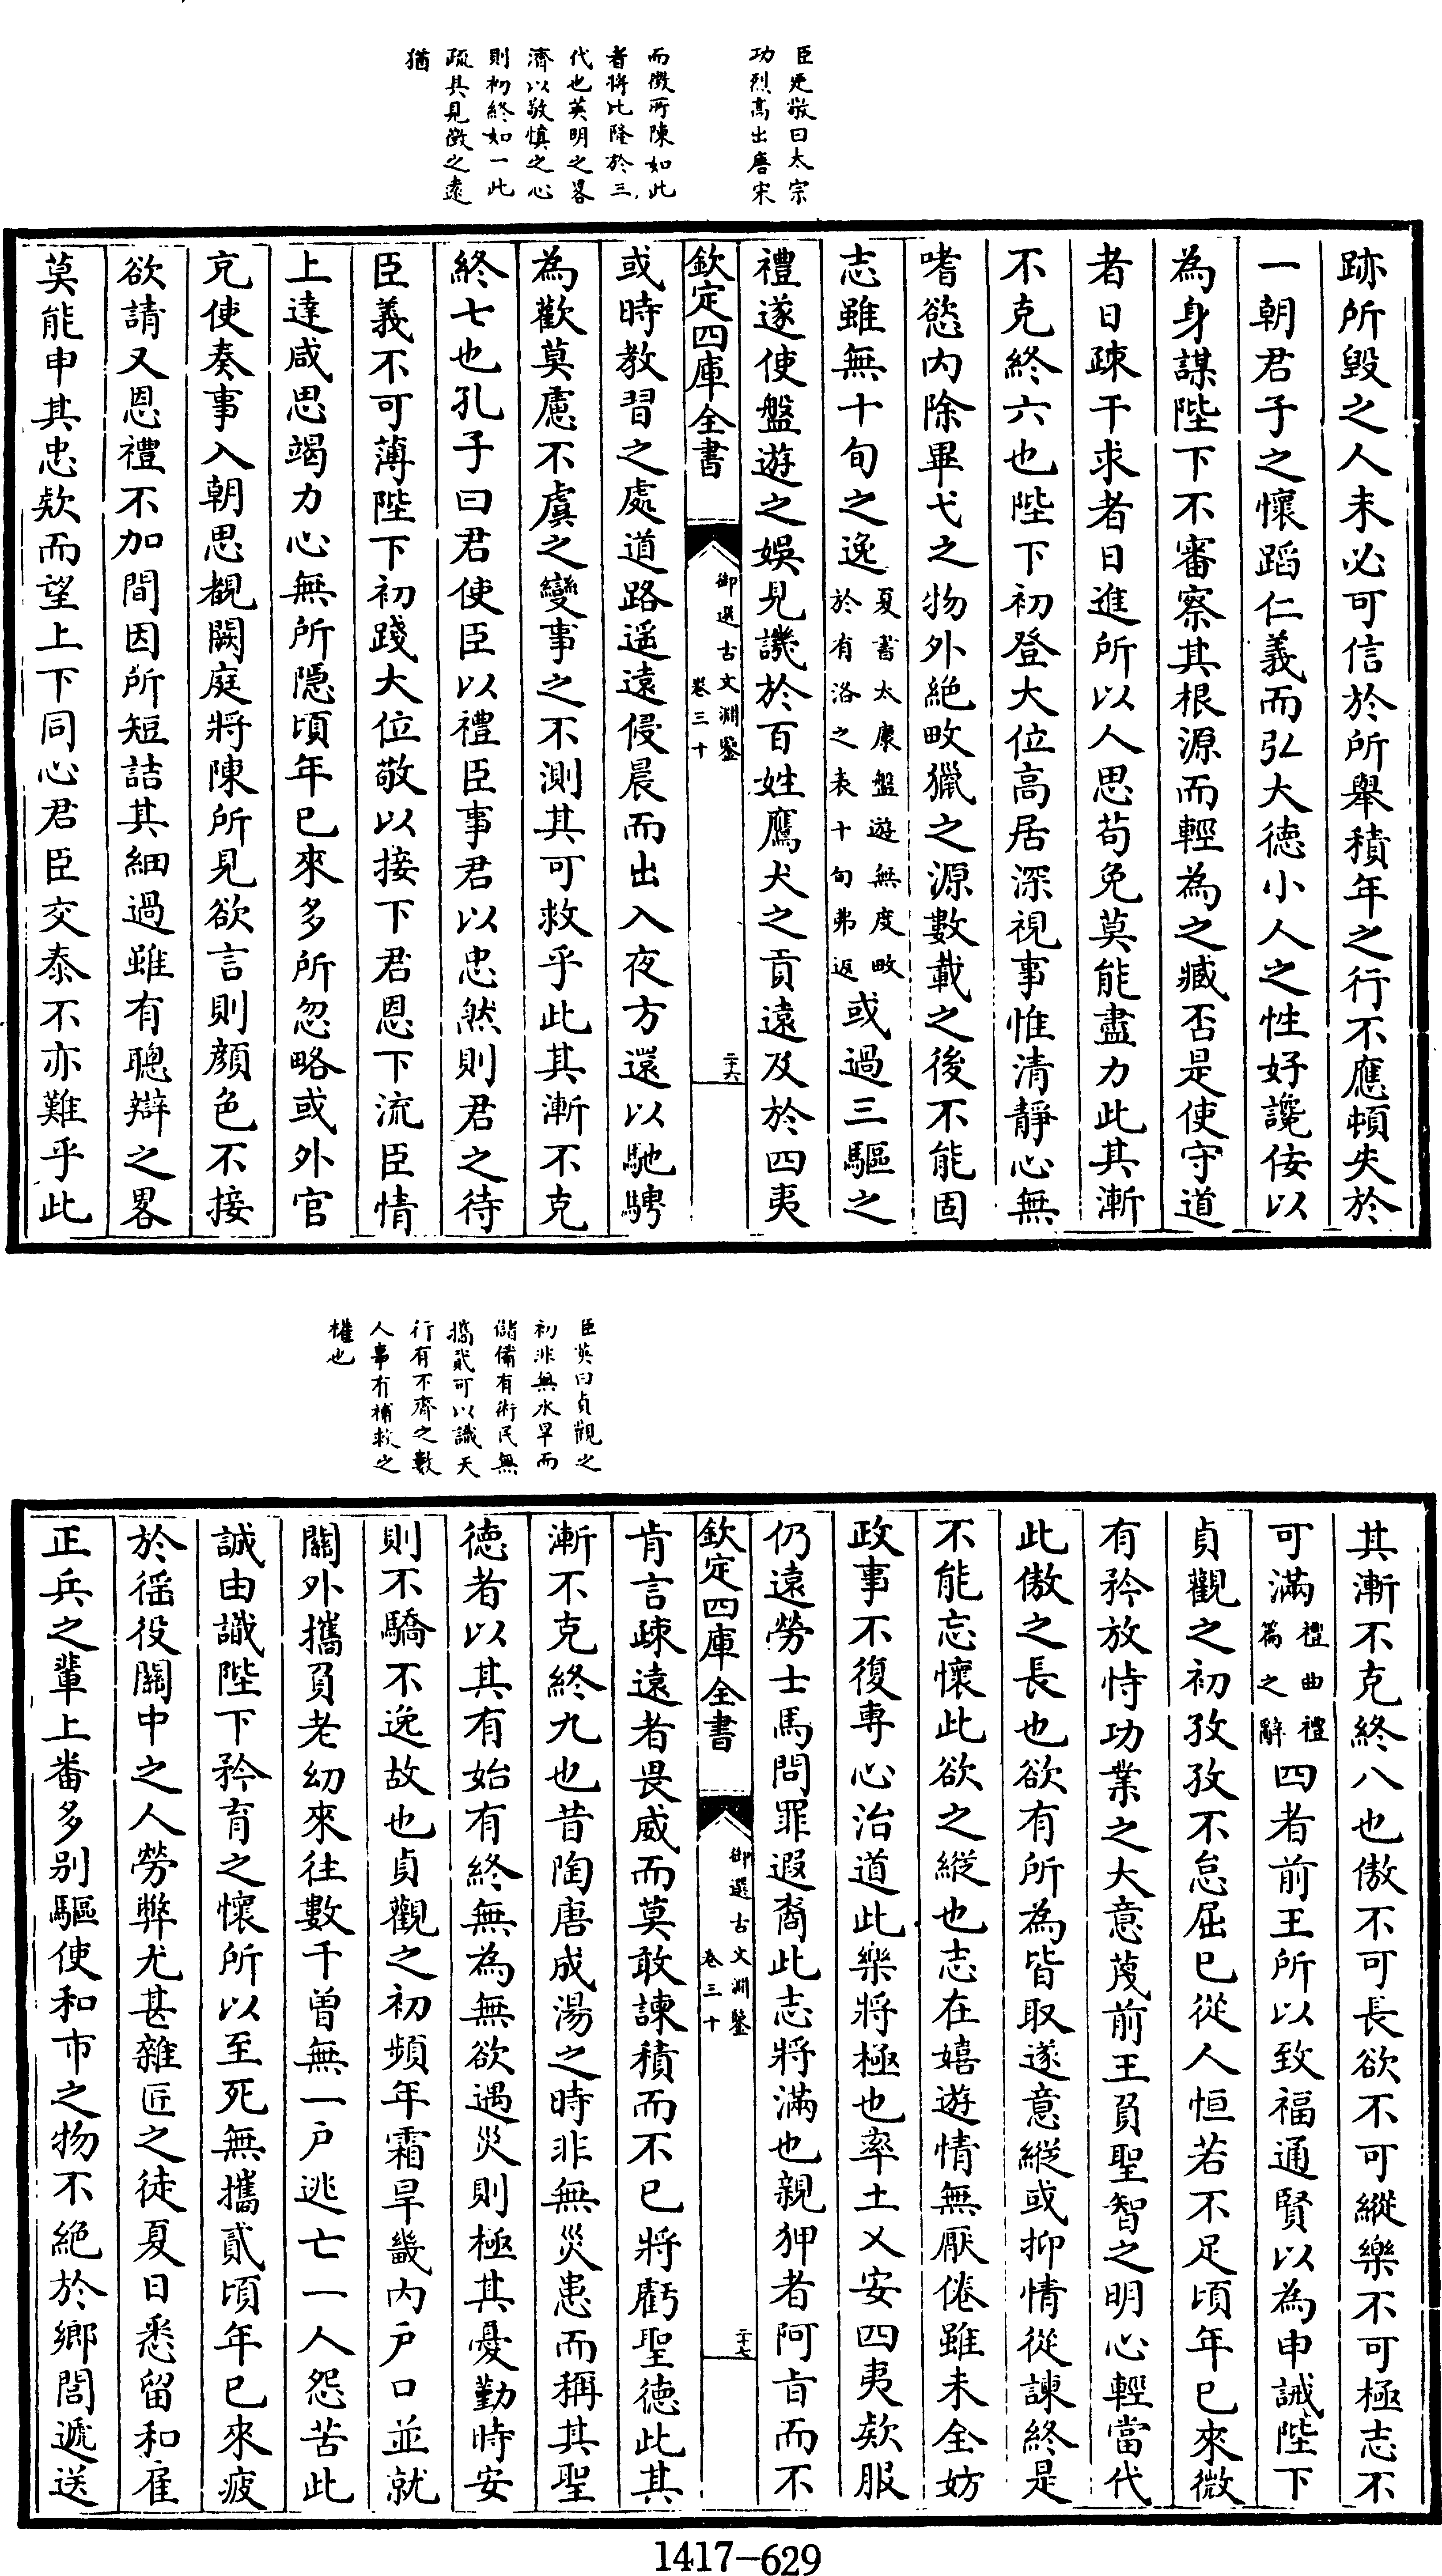 臣廷敬曰太宗
功烈高出唐宋
而徵所陳如此
者將比隆於三
代也英明之畧
濟以敬慎之心
則初終如一此
疏具見徵之遠
猶
跡所毀之人未必可信於所舉積年之行不應頓失於
一朝君子之懷蹈仁義而弘大德小人之性好讒佞以
為身謀陛下不審察其根源而輕為之臧否是使守道
者日疎干求者日進所以人思苟免莫能盡力此其漸
不克終六也陛下初登大位高居深視事惟清靜心無
嗜慾內除畢弋之物外絕畋獵之源數載之後不能固
志雖無十旬之逸夏書太康盤遊無度畋於有洛之表十旬弗返或過三驅之
禮遂使盤遊之娛見譏於百姓鷹犬之貢遠及於四夷
欽定四庫全書
御選古文淵鑒
卷三十
二十六
或時教習之處道路遥遠侵晨而出入夜方還以馳騁
為歡莫慮不虞之變事之不測其可救乎此其漸不克
終七也孔子曰君使臣以禮臣事君以忠然則君之待
臣義不可薄陛下初踐大位敬以接下君恩下流臣情
上達咸思竭力心無所隱頃年已來多所忽略或外官
充使奏事入朝思覩闕庭將陳所見欲言則顔色不接
欲請又恩禮不加間因所短詰其細過雖有聰辯之畧
莫能申其忠欵而望上下同心君臣交泰不亦難乎此
臣英曰貞觀之
初非無水旱而
儲備有術民無
攜貳可以識天
行有不齊之數
人事有補救之
權也
其漸不克終八也傲不可長欲不可縱樂不可極志不
可滿禮曲禮篇之辭四者前王所以致福通賢以為申誡陛下
貞觀之初孜孜不怠屈已從人恒若不足頃年已來微
有矜放恃功業之大意蔑前王負聖智之明心輕當代
此傲之長也欲有所為皆取遂意縱或抑情從諫終是
不能忘懷此欲之縱也志在嬉遊情無厭倦雖未全妨
政事不復專心治道此樂將極也率土乂安四夷欵服
仍遠勞士馬問罪遐裔此志將滿也親狎者阿㫖而不
欽定四庫全書
御選古文淵鑒
卷三十
二十七
肯言疎遠者畏威而莫敢諫積而不已將虧聖德此其
漸不克終九也昔陶唐成湯之時非無災患而稱其聖
德者以其有始有終無為無欲遇災則極其憂勤時安
則不驕不逸故也貞觀之初頻年霜旱畿內戶口並就
關外攜負老幼來往數千曾無一戶逃亡一人怨苦此
誠由識陛下矜育之懷所以至死無攜貳頃年已來疲
於徭役關中之人勞弊尤甚雜匠之徒夏日悉留和雇
正兵之輩上番多别驅使和市之物不絕於鄉閭遞送
1417-629